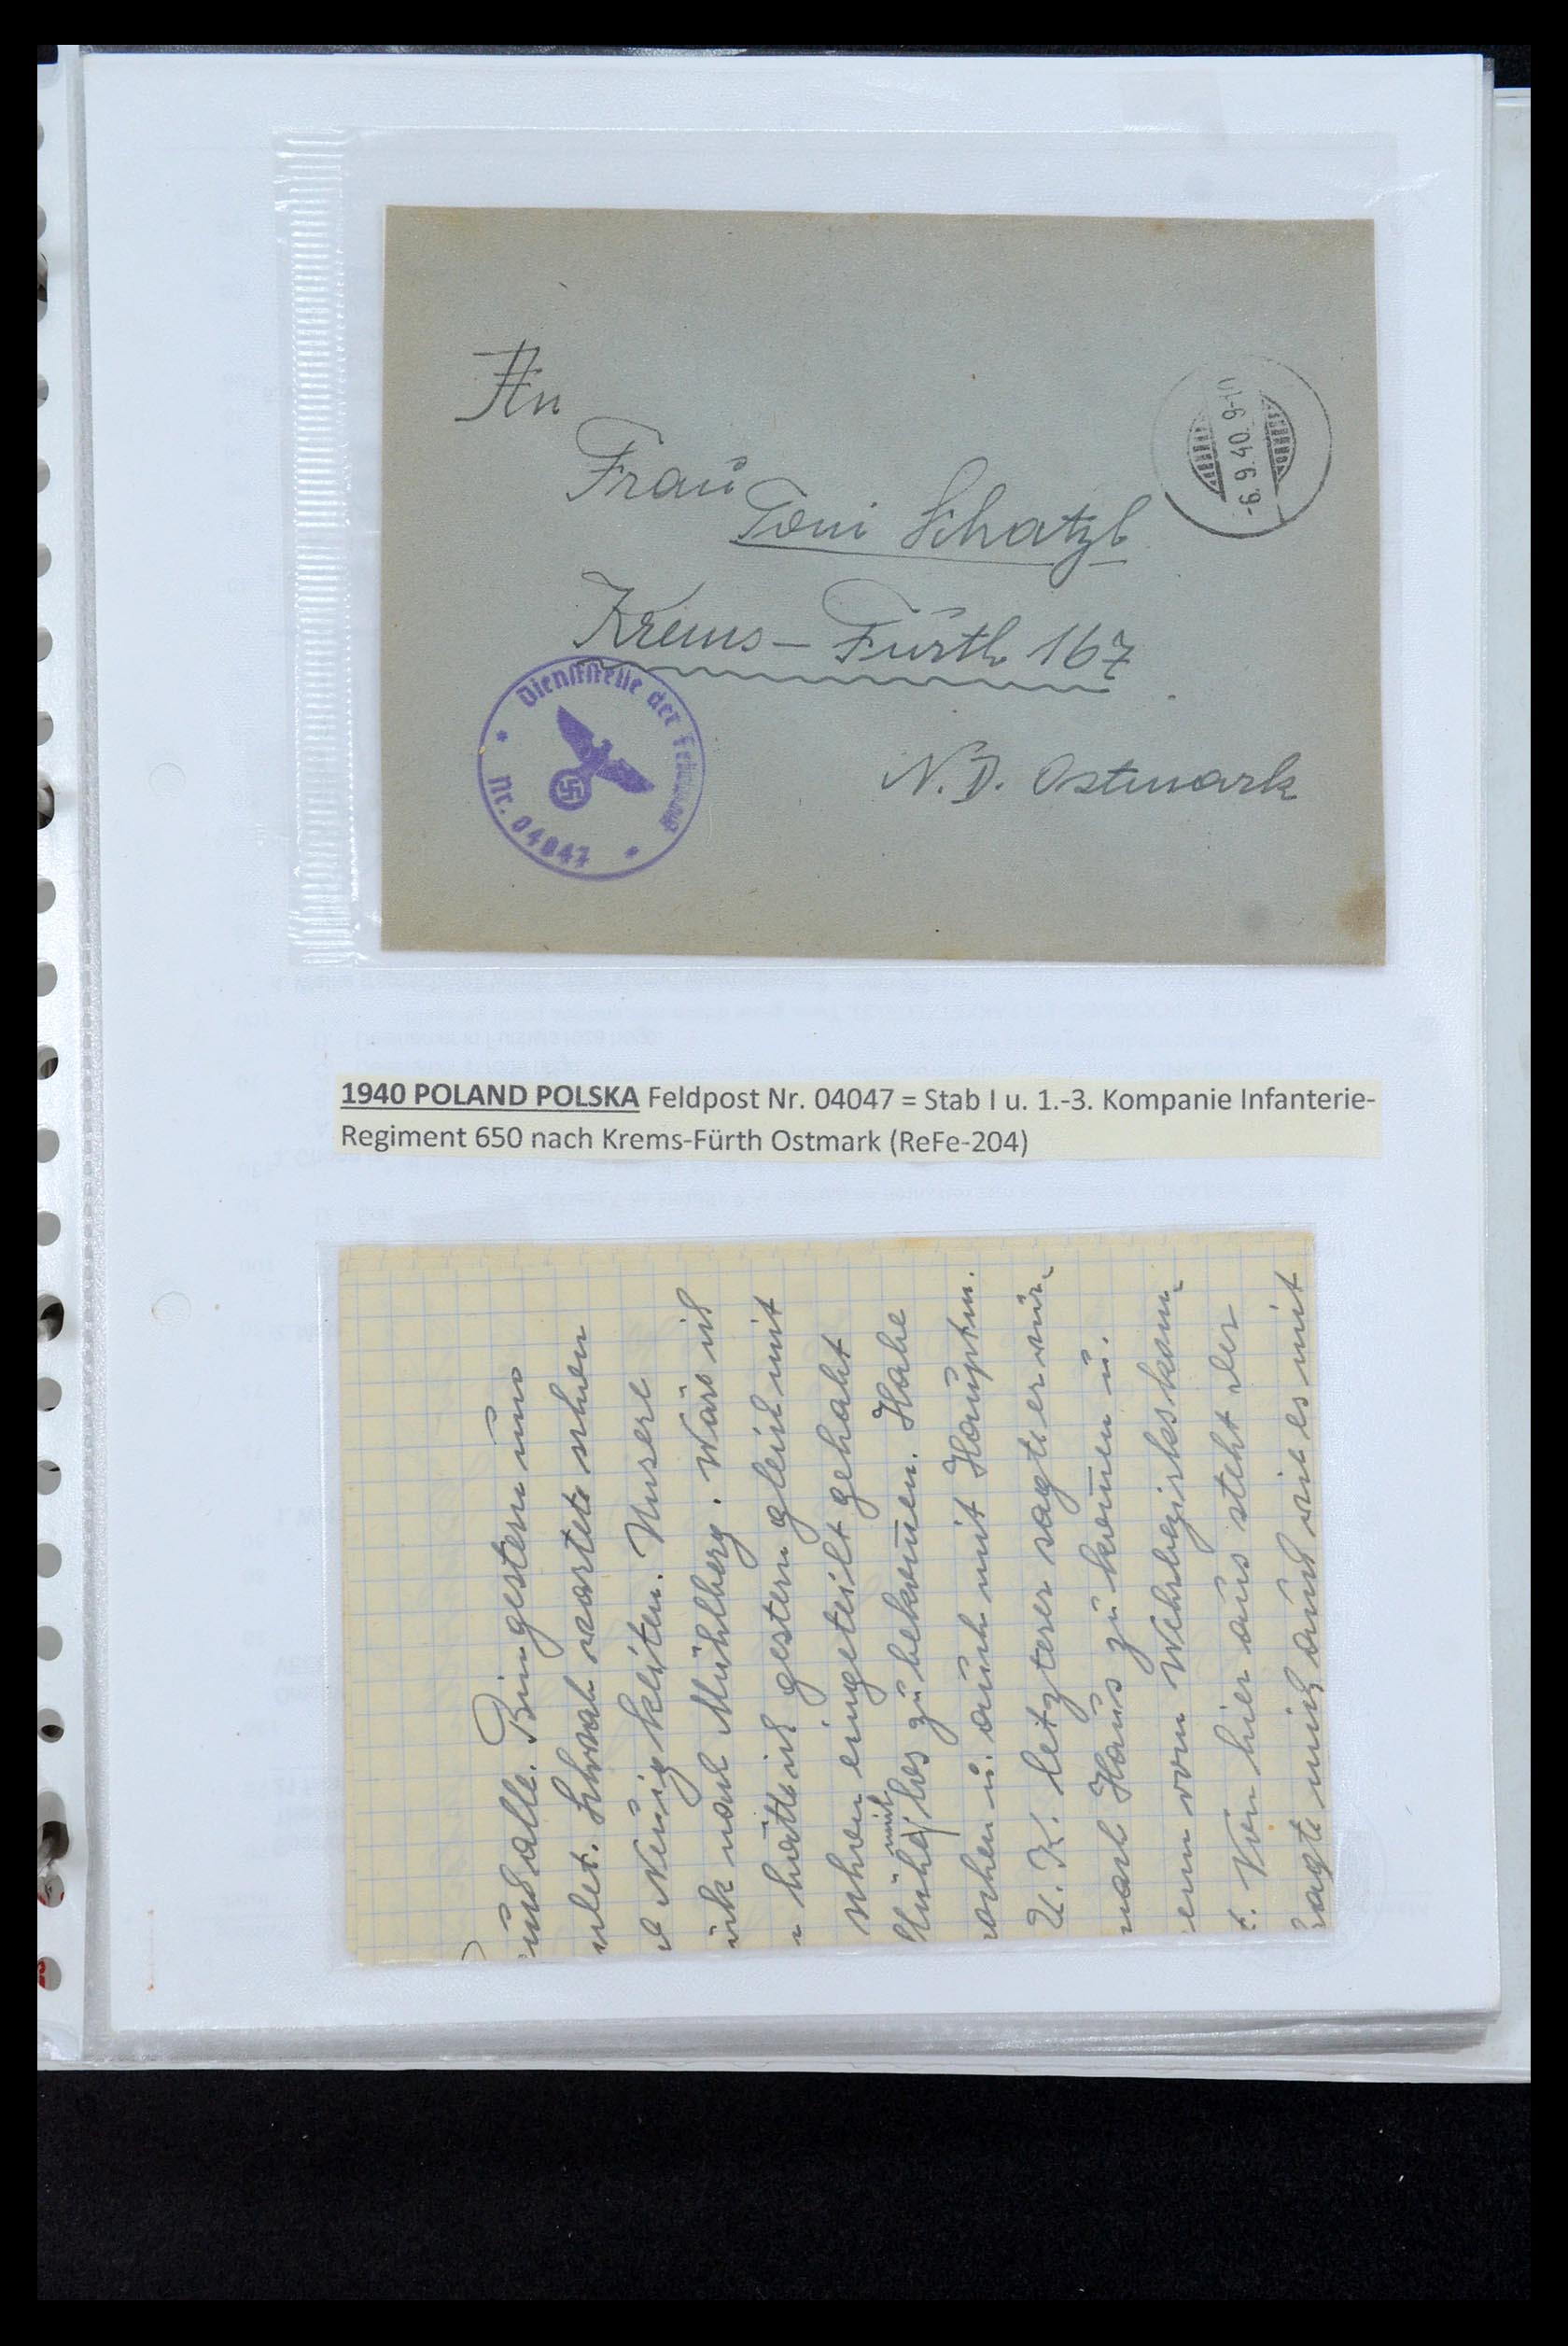 An
Frau
Toni Schatzl
Krems - Fürth 167
N.D. Ostmark
-6.9.40.9-10
Dienststelle der Feldpost
Nr. 04047
1940 POLAND POLSKA Feldpost Nr. 04047 = Stab I u. 1.-3. Kompanie Infanterie-
Regiment 650 nach Krems-Fürth Ostmark (ReFe-204)
alle. Bin gestern uns
wartete schon
Neuigkeiten. Unsere
nach Mühlberg. Wäre ich
hätte ich gestern gleich mit
eingeteilt gehabt
mich
los zu bekommen. Habe
u. auch mit Hauptm.
U.K. letzterer sagte er wür-
nach Haus zu kommen u.
vom Wehrbezirkskom-
Von hier aus steht der
sagte mich auch wie es mit